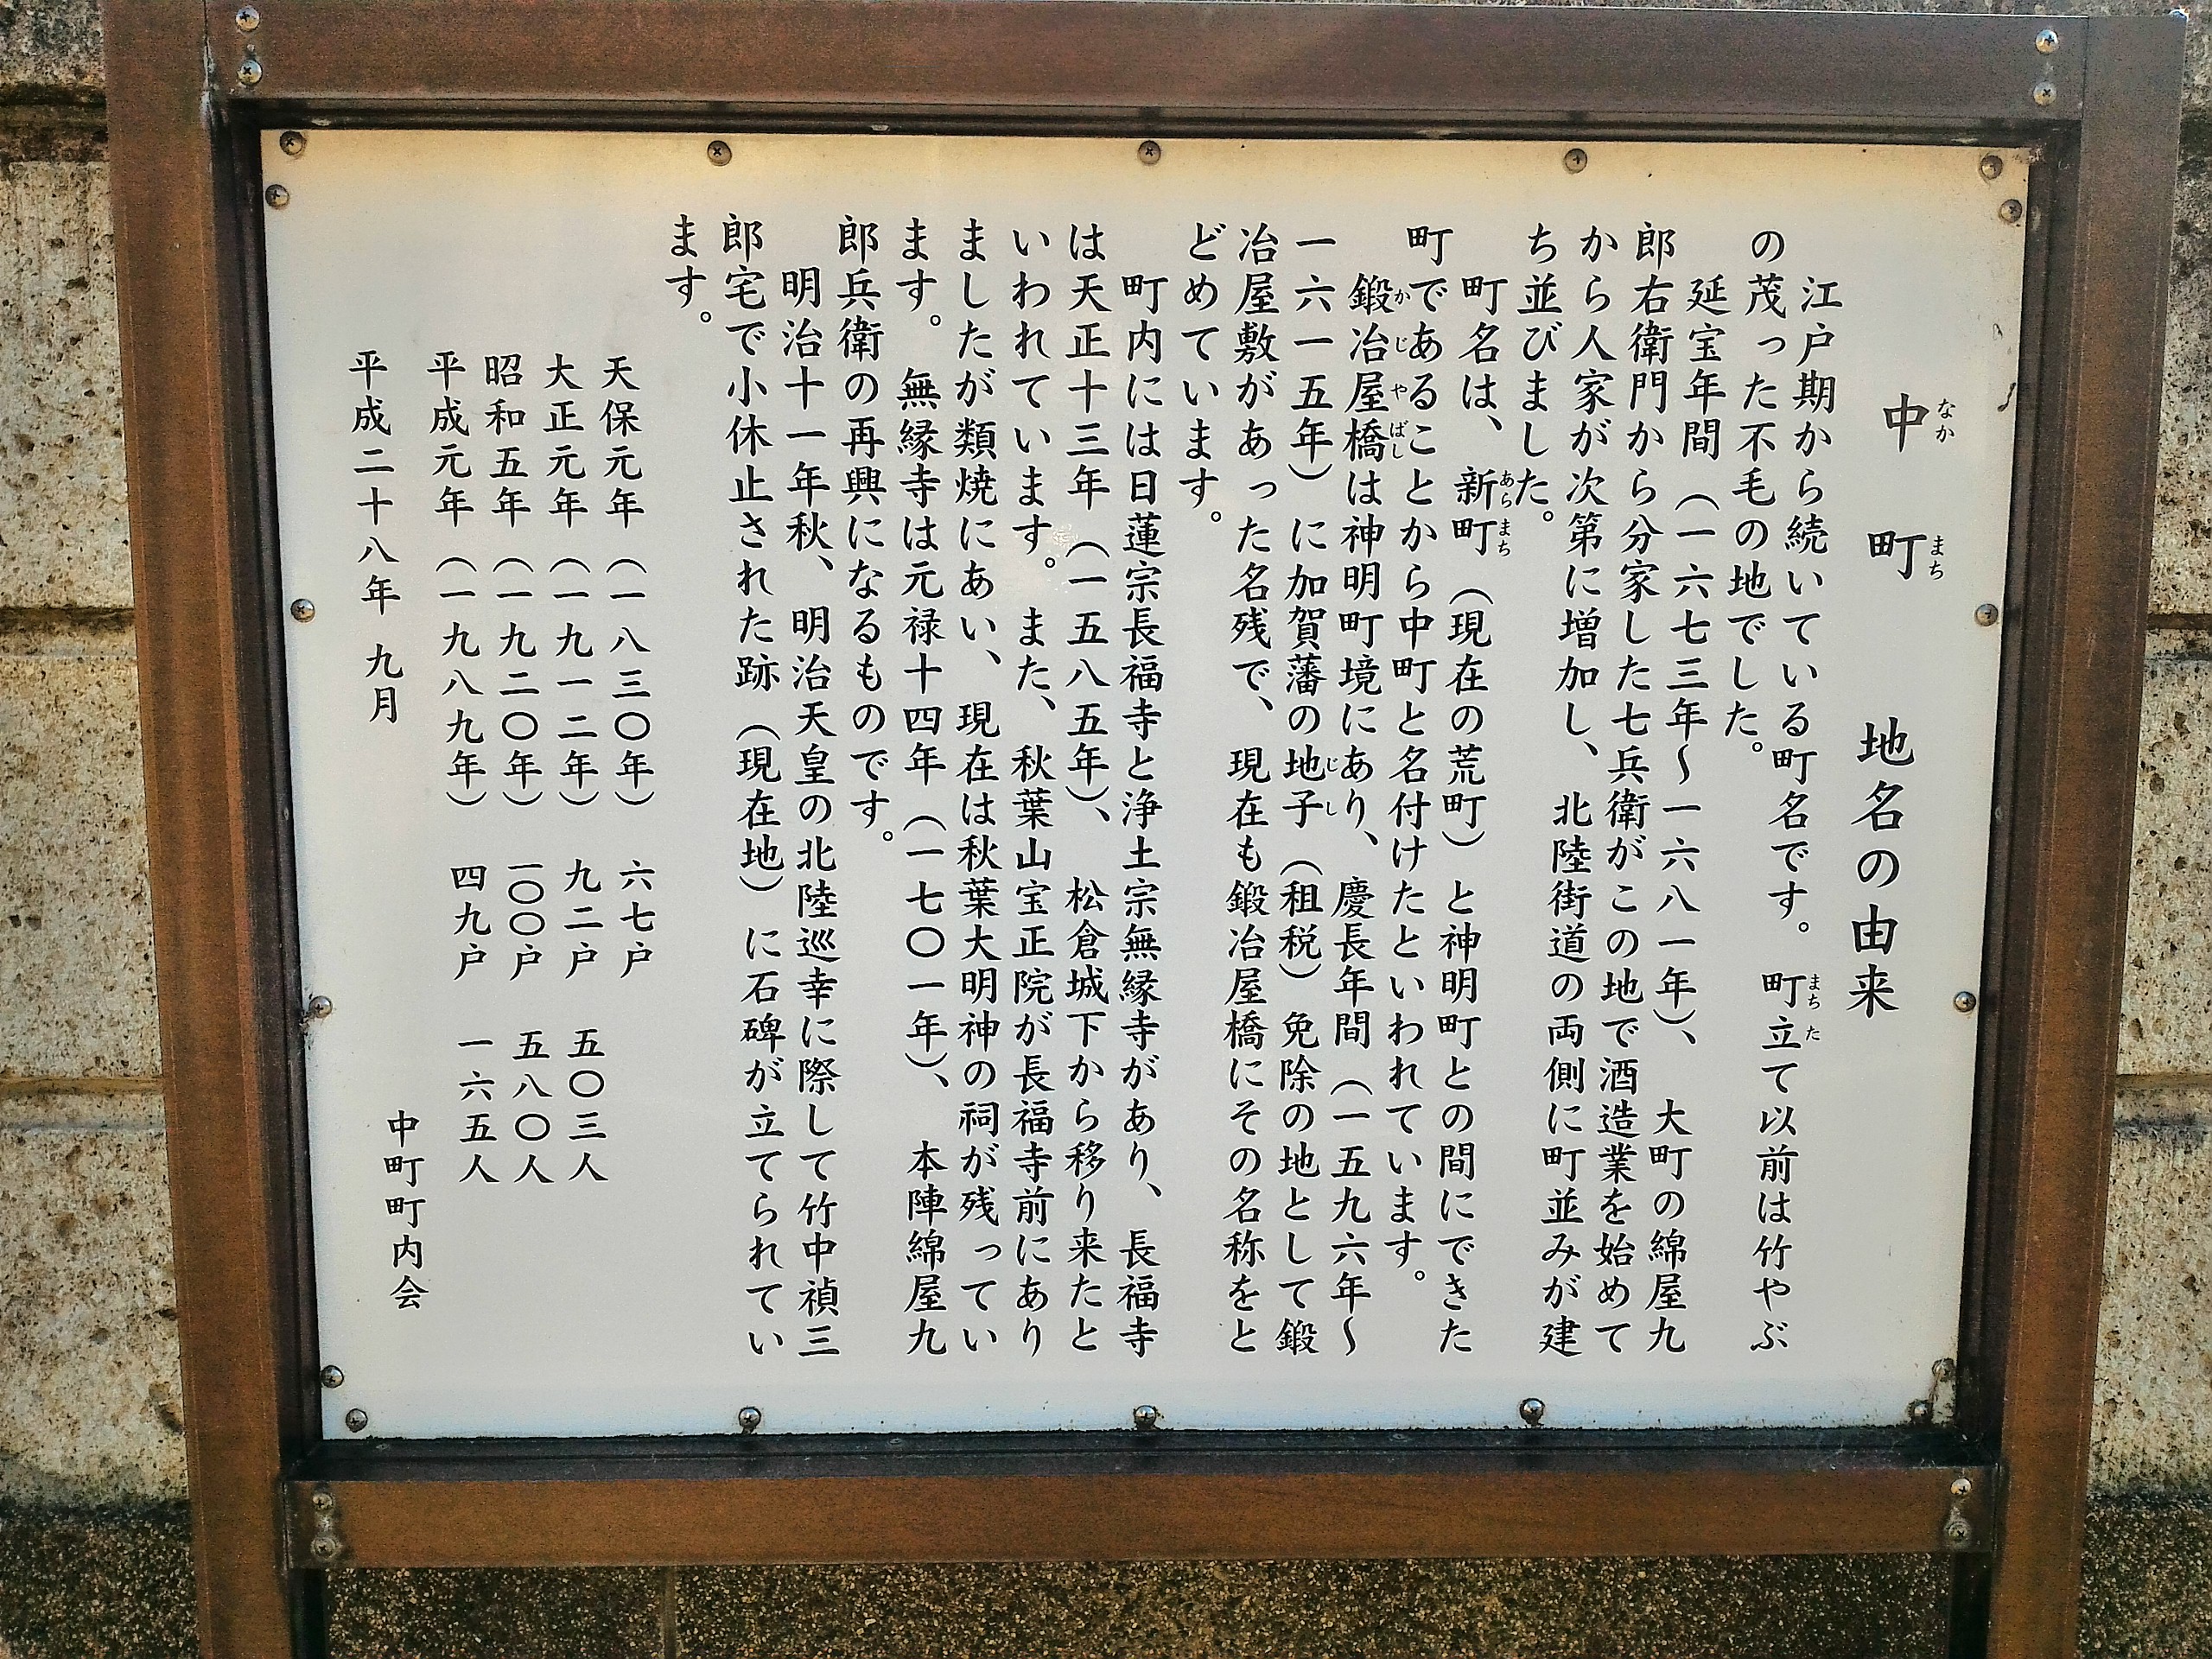 中町 地名の由来
江戸期から続いている町名です。町立て以前は竹やぶ
の茂った不毛の地でした。
延宝年間(一六七三年~一六八一年)、大町の綿屋九
郎右衛門から分家した七兵衛がこの地で酒造業を始めて
から人家が次第に増加し、北陸街道の両側に町並みが建
ち並びました。
町名は、新町(現在の荒町)と神明町との間にできた
町であることから中町と名付けたといわれています。
鍛冶屋橋は神明町境にあり、慶長年間(一五九六年~
一六一五年)に加賀藩の地子(租税)免除の地として鍛
冶屋敷があった名残で、現在も鍛冶屋橋にその名称をと
どめています。
町内には日蓮宗長福寺と浄土宗無縁寺があり、長福寺
は天正十三年(一五八五年)、松倉城下から移り来たと
いわれています。また、秋葉山宝正院が長福寺前にあり
ましたが類焼にあい、現在は秋葉大明神の祠が残ってい
ます。無縁寺は元禄十四年(一七〇一年)、本陣綿屋九
郎兵衛の再興になるものです。
明治十一年秋、明治天皇の北陸巡幸に際して竹中禎三
郎宅で小休止された跡(現在地)に石碑が立てられてい
ます。
天保元年(一八三〇年) 六七戸
大正元年(一九一二年) 九二戸 五〇三人
昭和五年(一九二〇年) 一〇〇戸 五八〇人
平成元年(一九八九年) 四九戸 一六五人
平成二十八年 九月
中町町内会